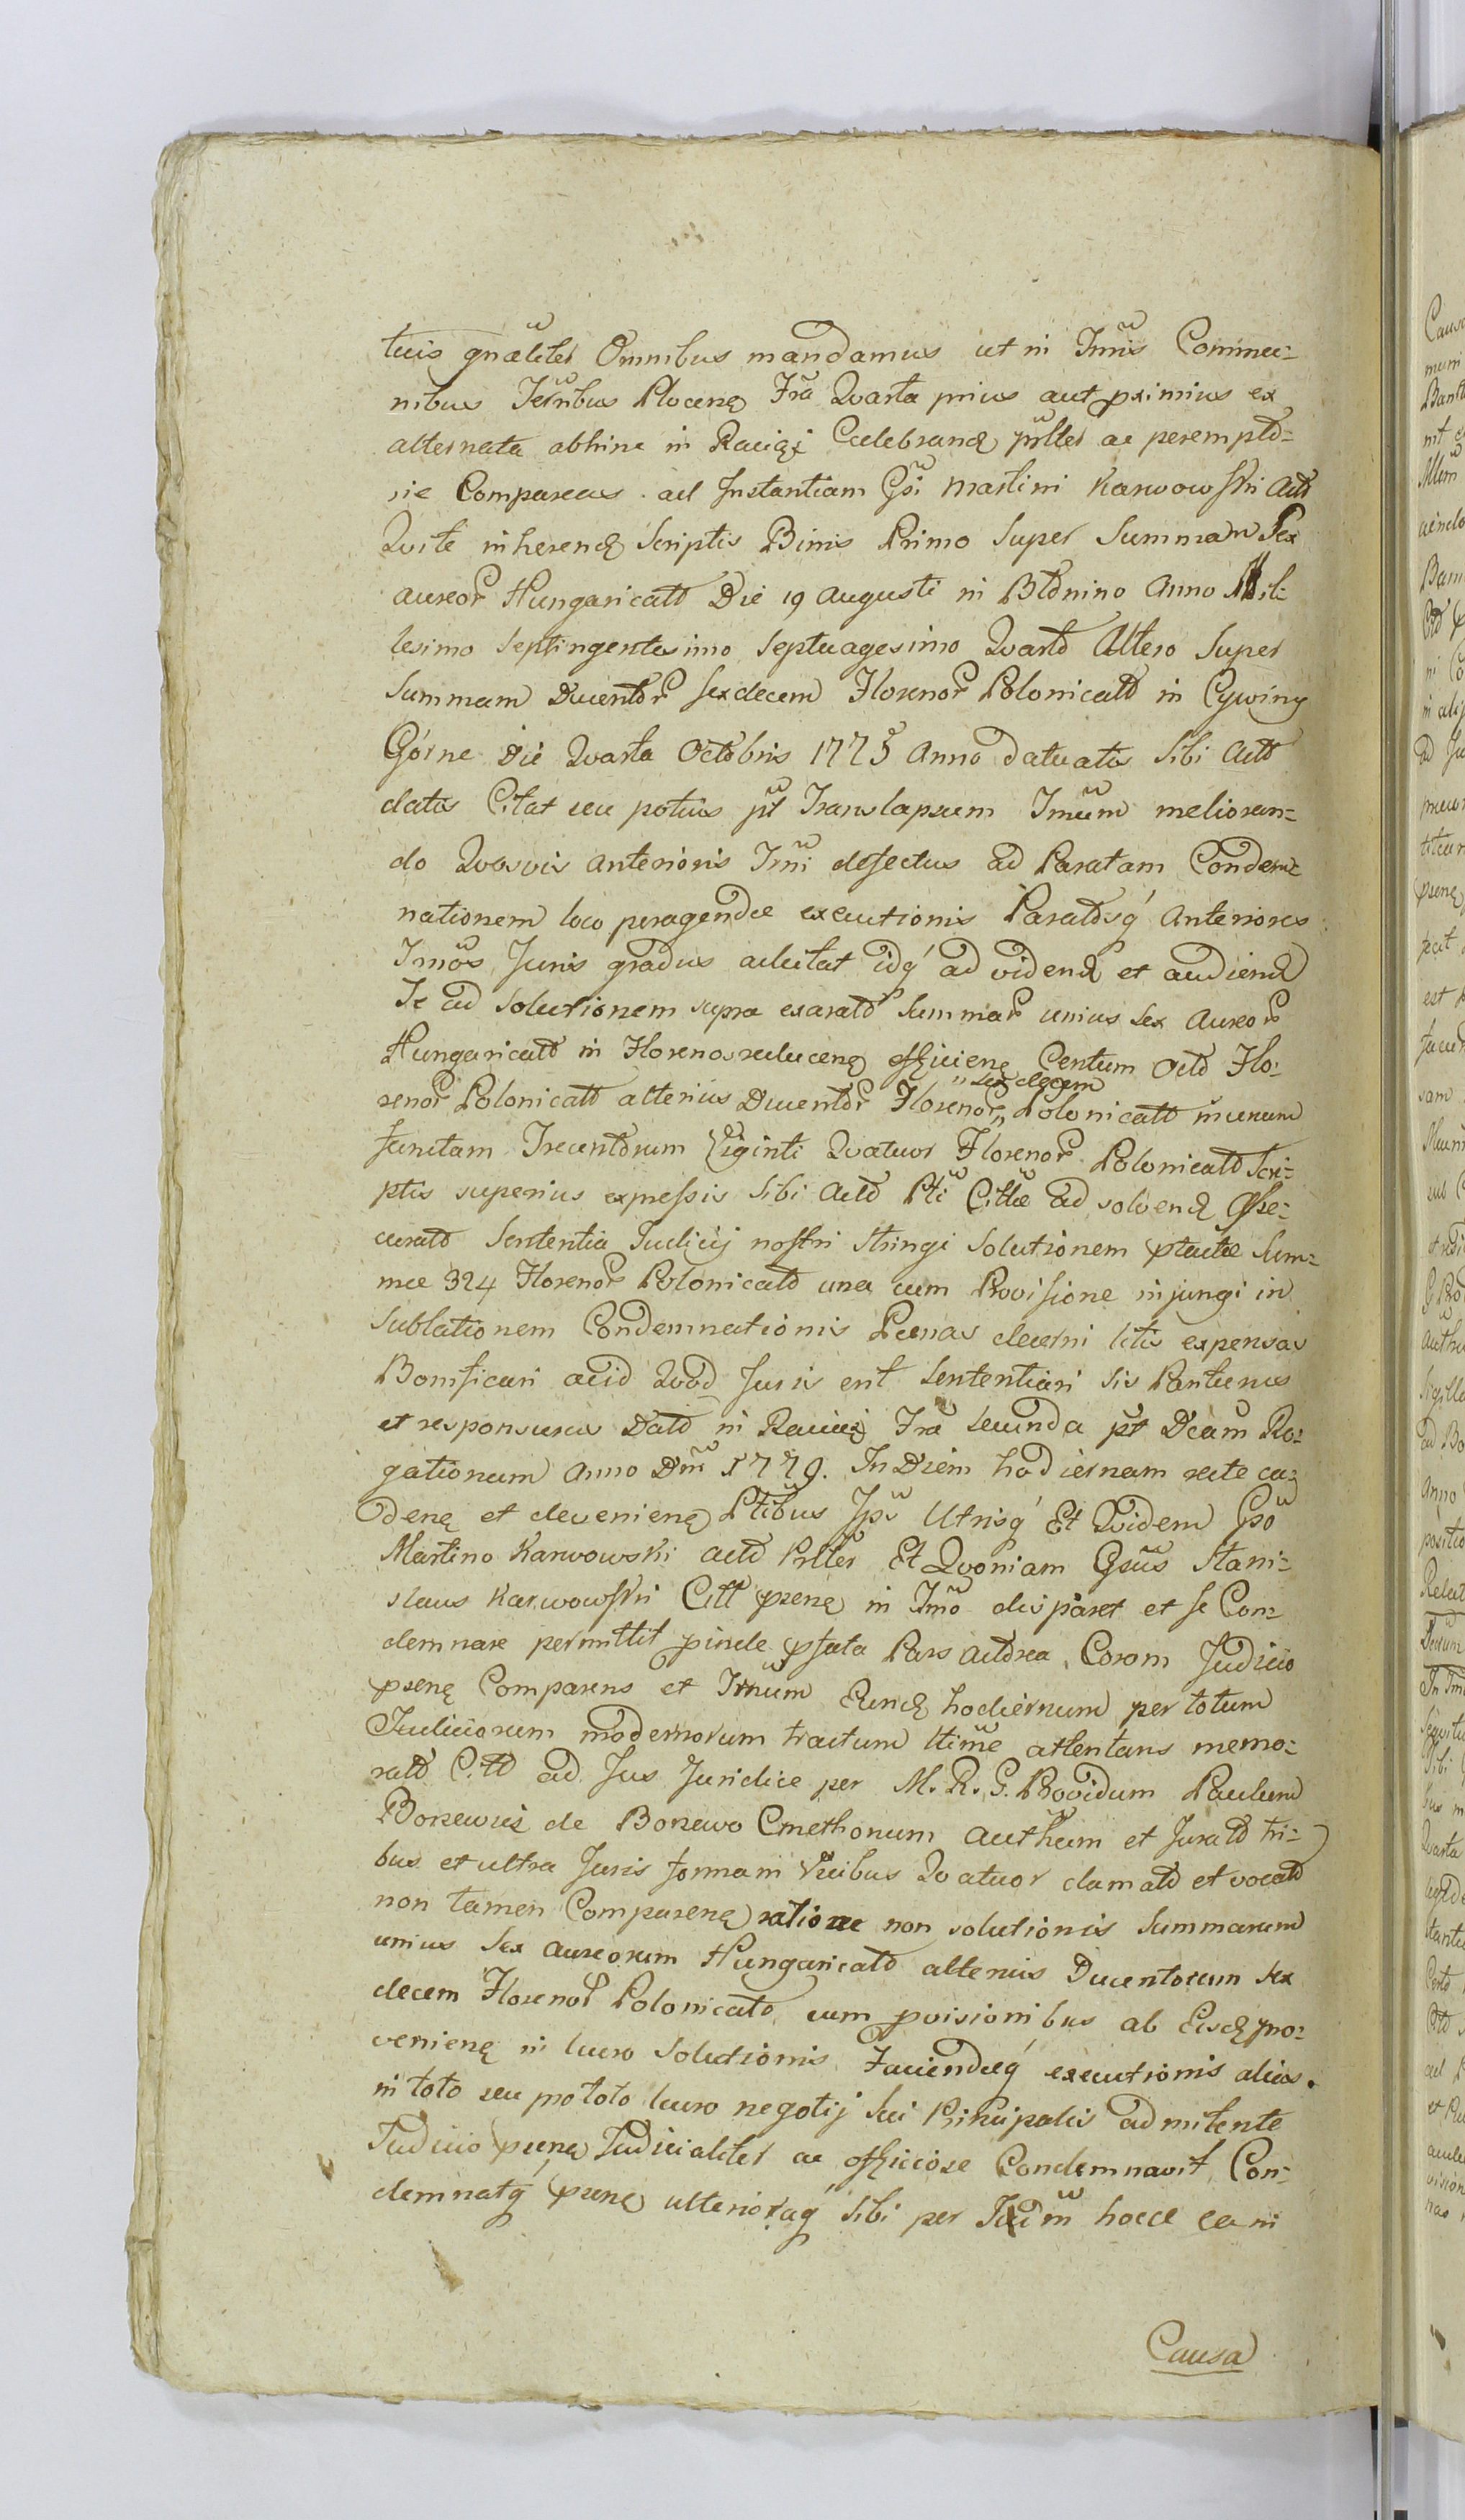 tuis gnãliter Omnibus mandamus ut in Tmis Commu=
nibus Terribus Plocenę Fra Quarta prius aut pximius ex
alternata abhinc in Raciąż Celebrand prlter ac perempto=
rie Compareas ad Instantiam Gsi Martini Karwowski Acto
Qvi te inherend Scriptis Binis Primo Super Summam Sex
aureor Hungaricato Die 19 Augusti in Błonino Anno Mil=
lesimo Septingentesimo Septuagesimo Qvarto Altero Super
Summam Ducentor Sexdecem Florenor Polonicato in Cywiny
Górne Die Qvarta Octobris 1775 Anno datuatis Sibi Acto
datis Citat seu potius pt Translapsum Tmum melioran=
do Qvosvis anterioris Tmi defectus ad Paratam Condem=
nationem loco peragendæ executionis Paratosq́ Anteriores
Tmos Juris gradus adcitat idq́ ad videnꝺ et audienꝺ
Te ad Solutionem supra exarato Summar unius Sex Aureor
Hungaricato in Florenos reducenę efficienę Centum Octo Flo=
" sex decem
renor Polonicato alterius Ducentor Florenor " Polonicato in unum
functam Trecentorum Viginti Qvatuor Florenor Polonicato Scri=
ptis superius expressis Sibi Acto Pti Cittæ ad solvenꝺ Asse=
curato Sententia Judicij nostri Stringi Solutionem ptactæ Sum=
mæ 324 Florenor Polonicato una cum Provisione injungi in
Sublationem Condemnationis Pœnas decerni litis expensas
Bonificari acid Qvod Juris erit Sententiari Sis Pariturus
et responsurus Dato in Raciąż Fra Secunda pt Dcam Ro=
gationum Anno Dni 1779. In Diem hodiernam recte ca=
denę et devenienę Ptibus Jps Utrisq́ Et Qvidem Gso
Martino Karwowski Acto Prlter Et Qvoniam Gsus Stani=
slaus Karwowski Citt psenę in Tmo disparet et se Con=
demnare permittit pinde psata Pars Actorea Coram Judicio
psenę Comparens et Tmum Eundꝺ hodiernum per totum
Judiciorum modernorum tractum ltime attentans memo=
rato Citto ad Jus Juridice per M. R. G. Providum Paulum
de Borzewo Cmethonum Authum et Jurato tri=
bus et ultra Juris formam Vicibus Qvatuor clamato et vocato
non tamen Comparenę ratione non solutionis Summarum
unius Sex Aureorum Hungaricato alterius Ducentorum Sex
decem Florenor Polonicato cum pvisionibus ab Eisdꝺ pro=
venienę in lucro Solutionis Faciendæq́ executionis alias.
in toto seu pro toto lucro negotij Sui Principalis admitente
Judicio psenę Judicialiter ac officiose Condemnavit Con=
demnatq́ psenę ulteriorąq́ Sibi per Judm hocce ea in
Causa